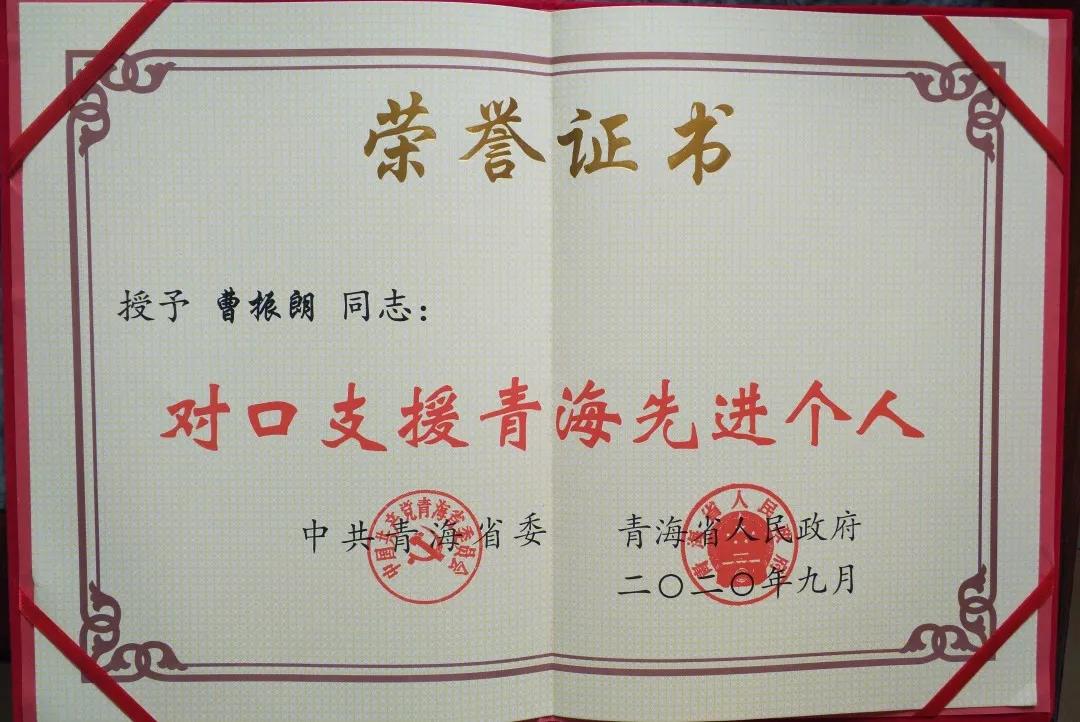 荣誉证书
授予 曹振朗 同志：
对口支援青海先进个人
中共青海省委 青海省人民政府
中国共产党青海省委员会
青海省人民政府
二〇二〇年九月